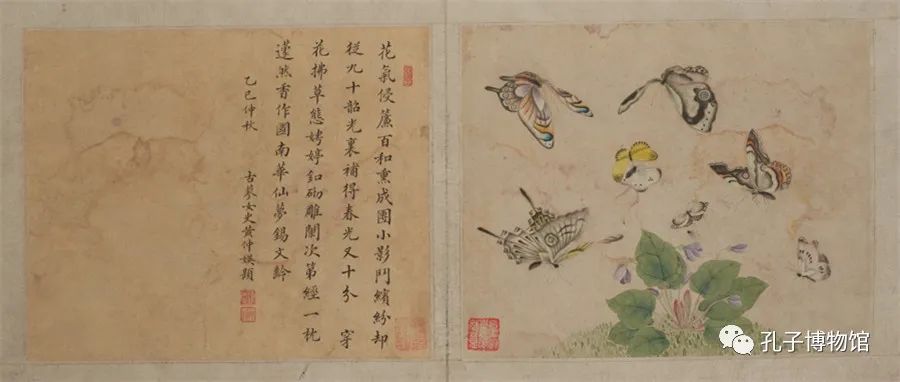 花氣侵簾百和熏成團小影鬥繽紛却
從九十韶光裏補得春光又十分 穿
花拂草態娉婷釦砌雕闌次第經一枕
蘧然香作國南華仙夢錫文齡
乙巳仲秋 古蓼女史黄仲媖題
孔子博物馆